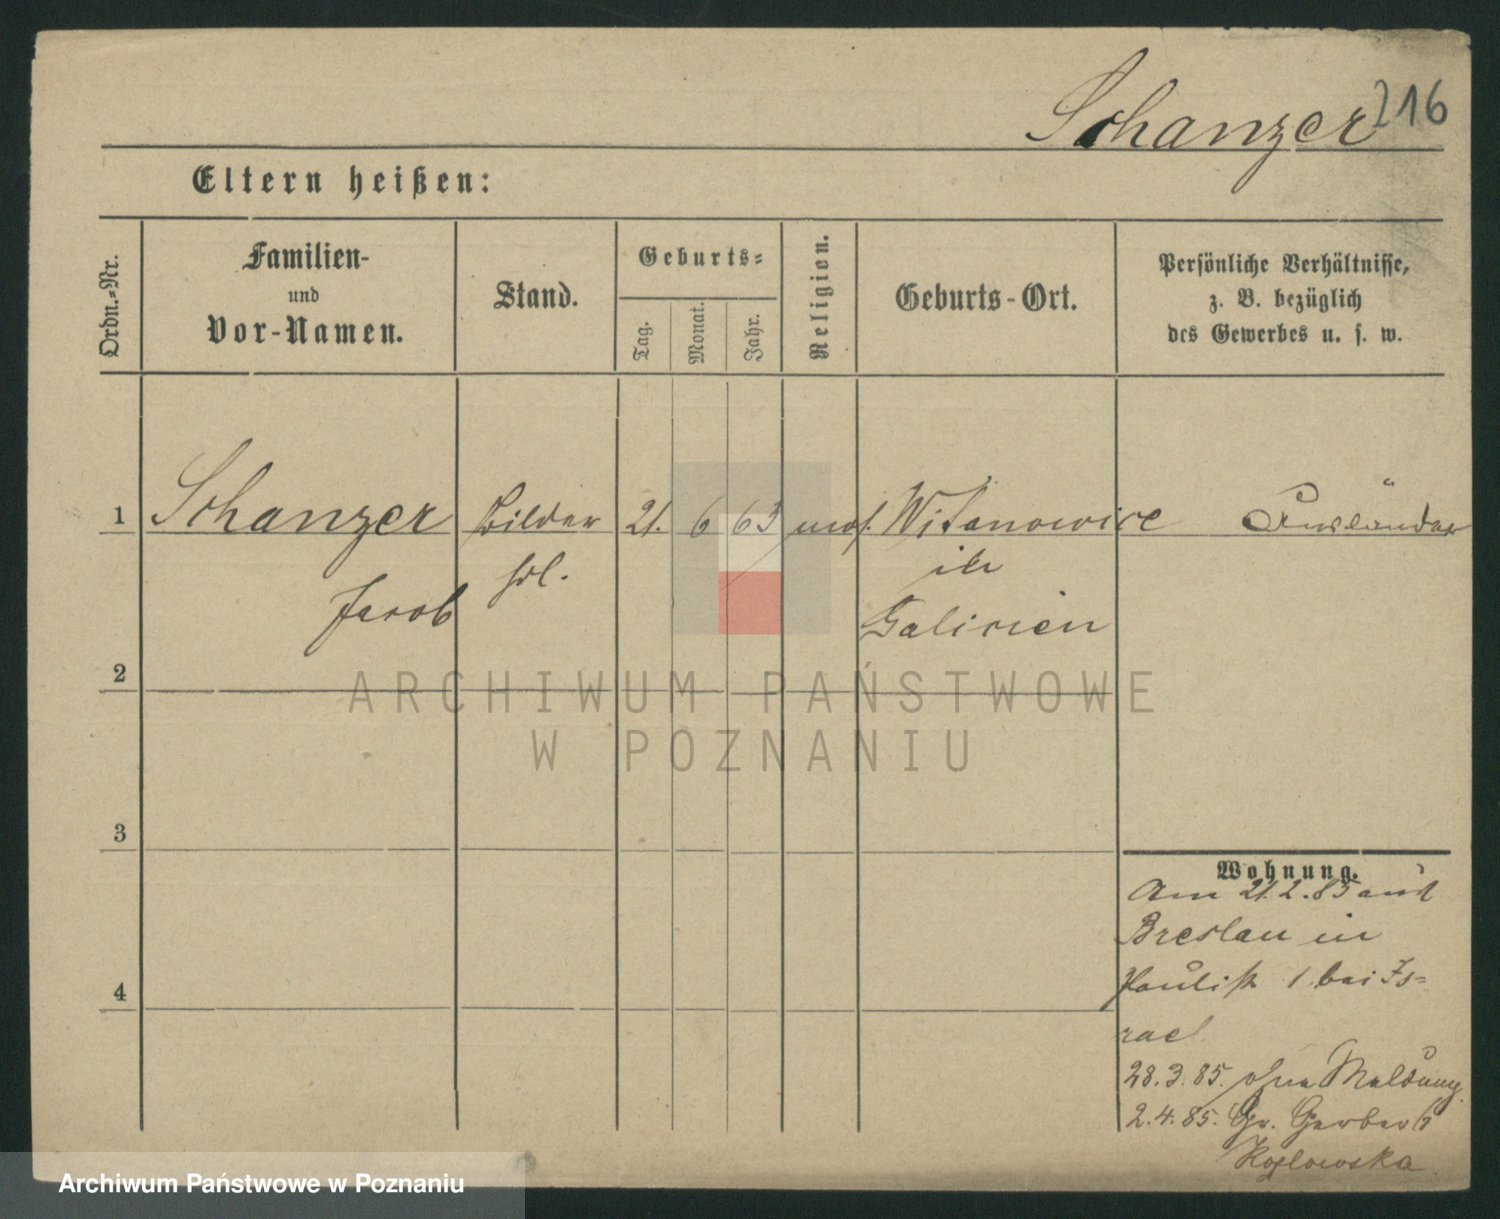 Schanzer
216
Eltern heißen:
Ordn.-Nr.
Familien-
und
Vor-Namen.
Stand.
Geburts-
Tag.
Monat.
Jahr.
Religion.
Geburts-Ort.
Persönliche Verhältnisse,
z. B. bezüglich
des Gewerbes u. s. w.
1 Schanzer 21. 6 63 mos. Witanowice Ausländer
in
Jacob Galicien
2
ARCHIWUM PAŃSTWOWE
W POZNANIU
3
Wohnung.
Am 21.2.85 aus
Breslau in
Paulist. 1 bei Is-
rael
4
28.3.85. ohne Meldung
2.4.85. Gr. Gerber 6
Koslowska
Archiwum Państwowe w Poznaniu